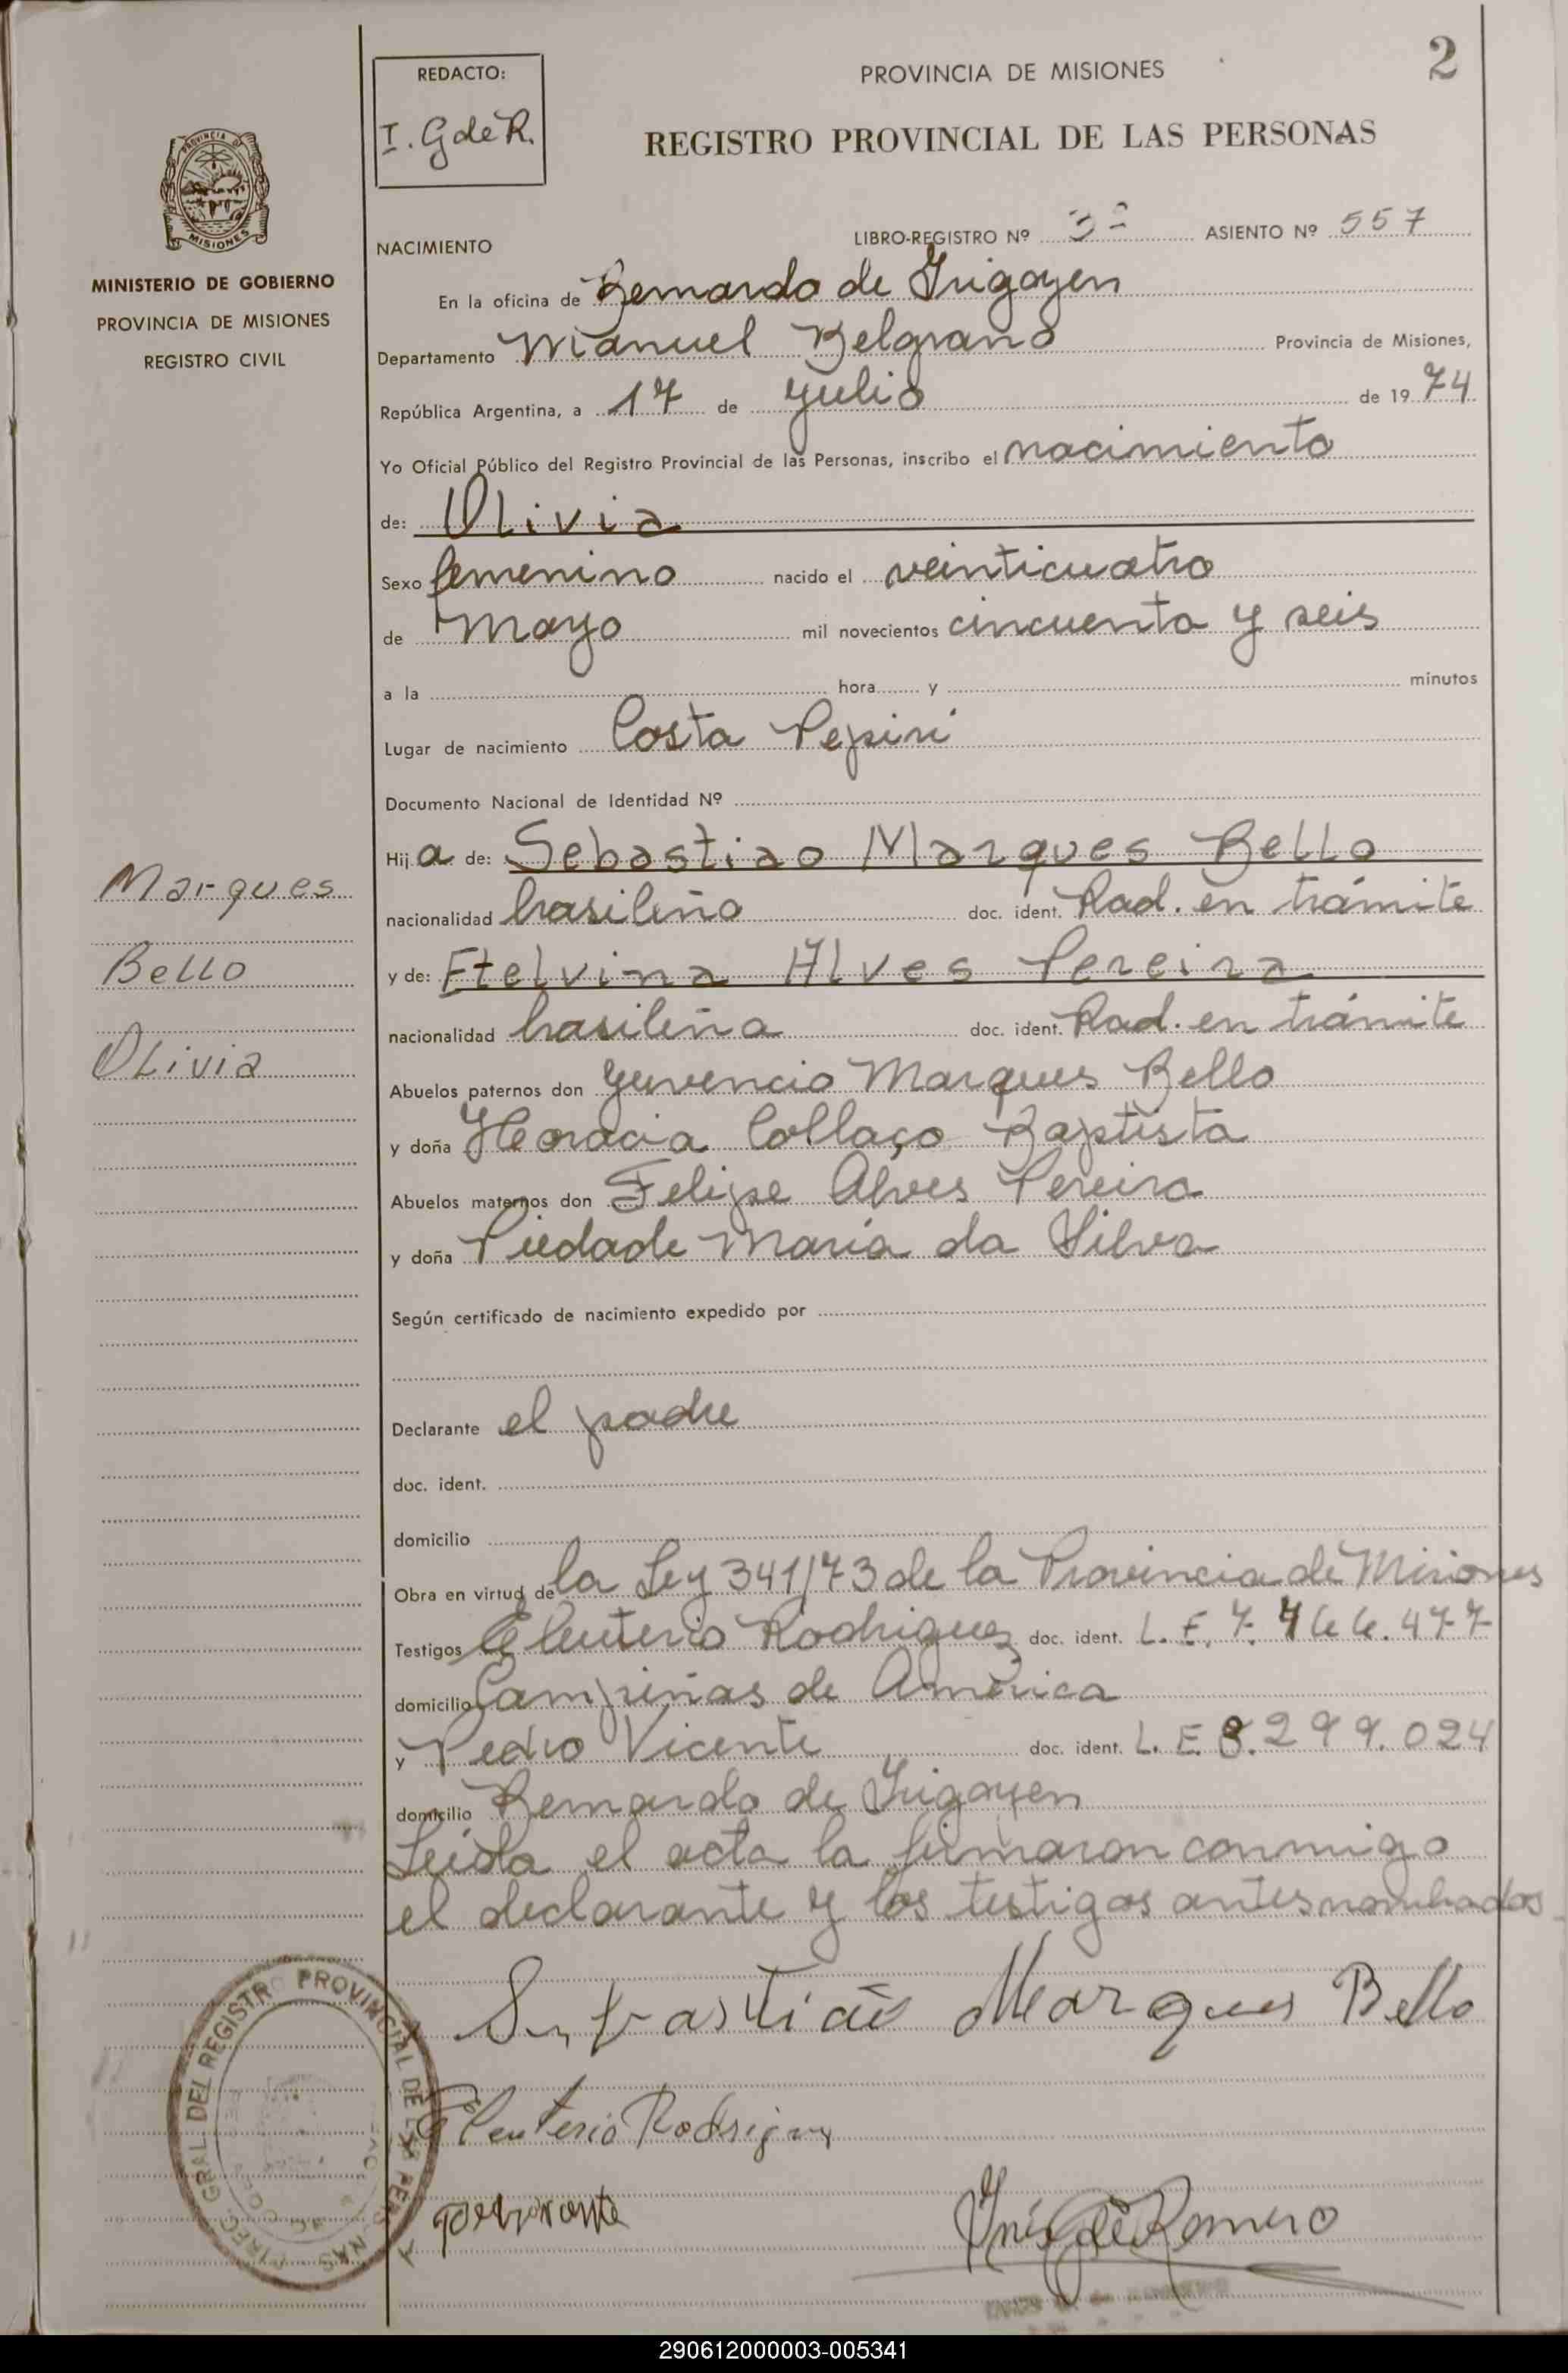 2
REDACTO:
I. G de R.
PROVINCIA DE MISIONES
REGISTRO PROVINCIAL DE LAS PERSONAS
PROVINCIA DE
MISIONES
MINISTERIO DE GOBIERNO
PROVINCIA DE MISIONES
REGISTRO CIVIL
NACIMIENTO
LIBRO-REGISTRO Nº 3º ASIENTO Nº 557
En la oficina de Bernardo de Irigoyen
Departamento Manuel Belgrano Provincia de Misiones,
República Argentina, a 17 de Julio de 1974
Yo Oficial Público del Registro Provincial de las Personas, inscribo el nacimiento
de: Olivia
Sexo femenino nacido el veinticuatro
de Mayo mil novecientos cincuenta y seis
a la hora y minutos
Lugar de nacimiento Costa Pepirí
Documento Nacional de Identidad Nº
Hija de: Sebastiao Marques Bello
nacionalidad brasileño doc. ident. Rad. en trámite
y de: Etelvina Alves Pereira
nacionalidad brasileña doc. ident. Rad. en trámite
Marques
Bello
Olivia
Abuelos paternos don Yuvencio Marques Bello
y doña Heoracia Collaço Baptista
Abuelos maternos don Felipe Alves Pereira
y doña Piedade Maria da Silva
Según certificado de nacimiento expedido por
Declarante el padre
doc. ident.
domicilio
Obra en virtud de la Ley 341/73 de la Provincia de Misiones
Testigos Eleuterio Rodriguez doc. ident. L. E. 7.466.477
domicilio Campiñas de América
y Pedro Vicente doc. ident. L. E. 8.299.024
domicilio Bernardo de Irigoyen
Leída el acta la firmaron conmigo
el declarante y los testigos antes nombrados
Sebastião Marques Bello
Eleuterio Rodriguez
Inés G de Romero
DIREC. GRAL. DEL REGISTRO PROVINCIAL DE LAS PERSONAS
290612000003-005341